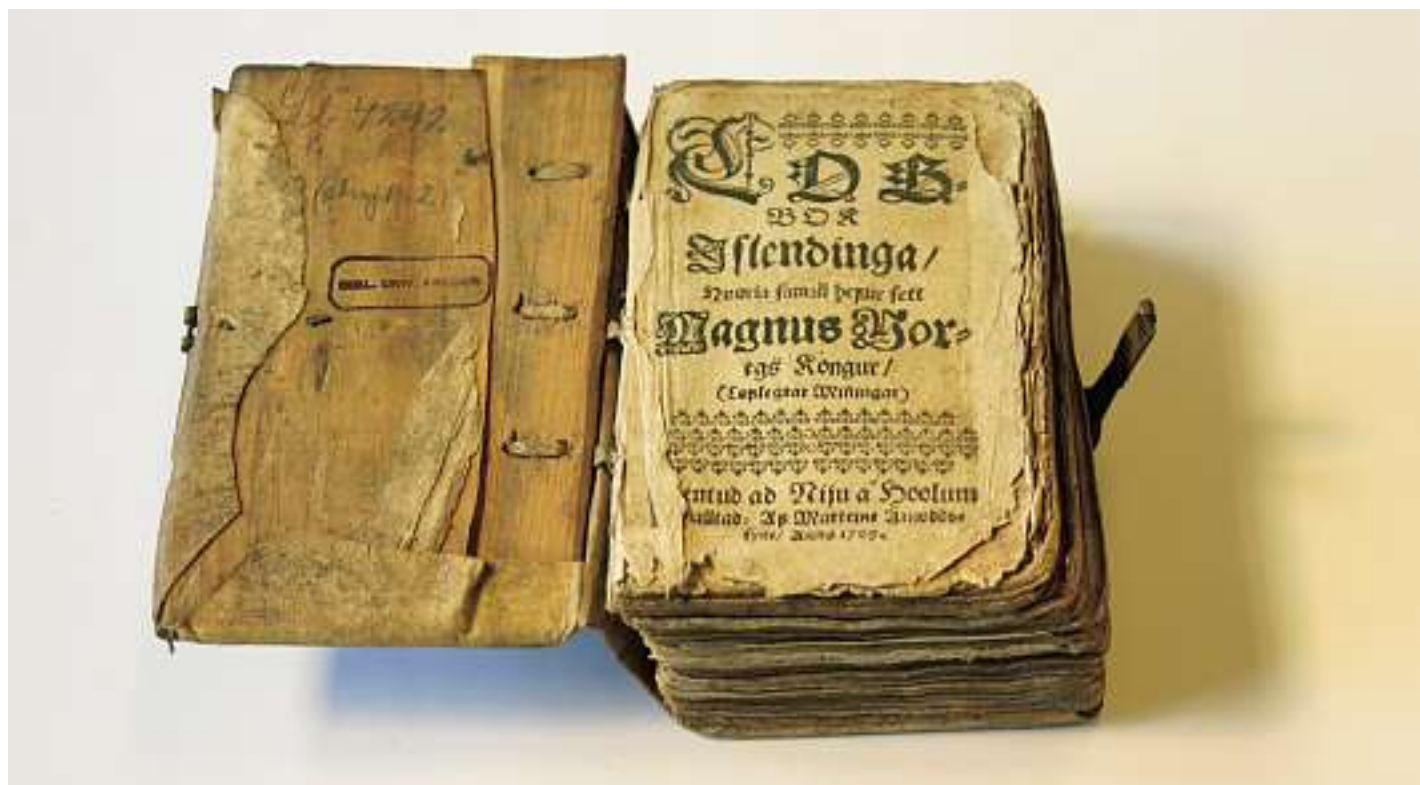 4542
LOG-
BOK
Islendinga/
Hvoria saman hefur sett
Magnus Nor-
egs Kongur/
(Loflegrar Miñingar)
entud ad Niju a Hoolum
Af Marteine Arnodds
syne/ Anno 1709.